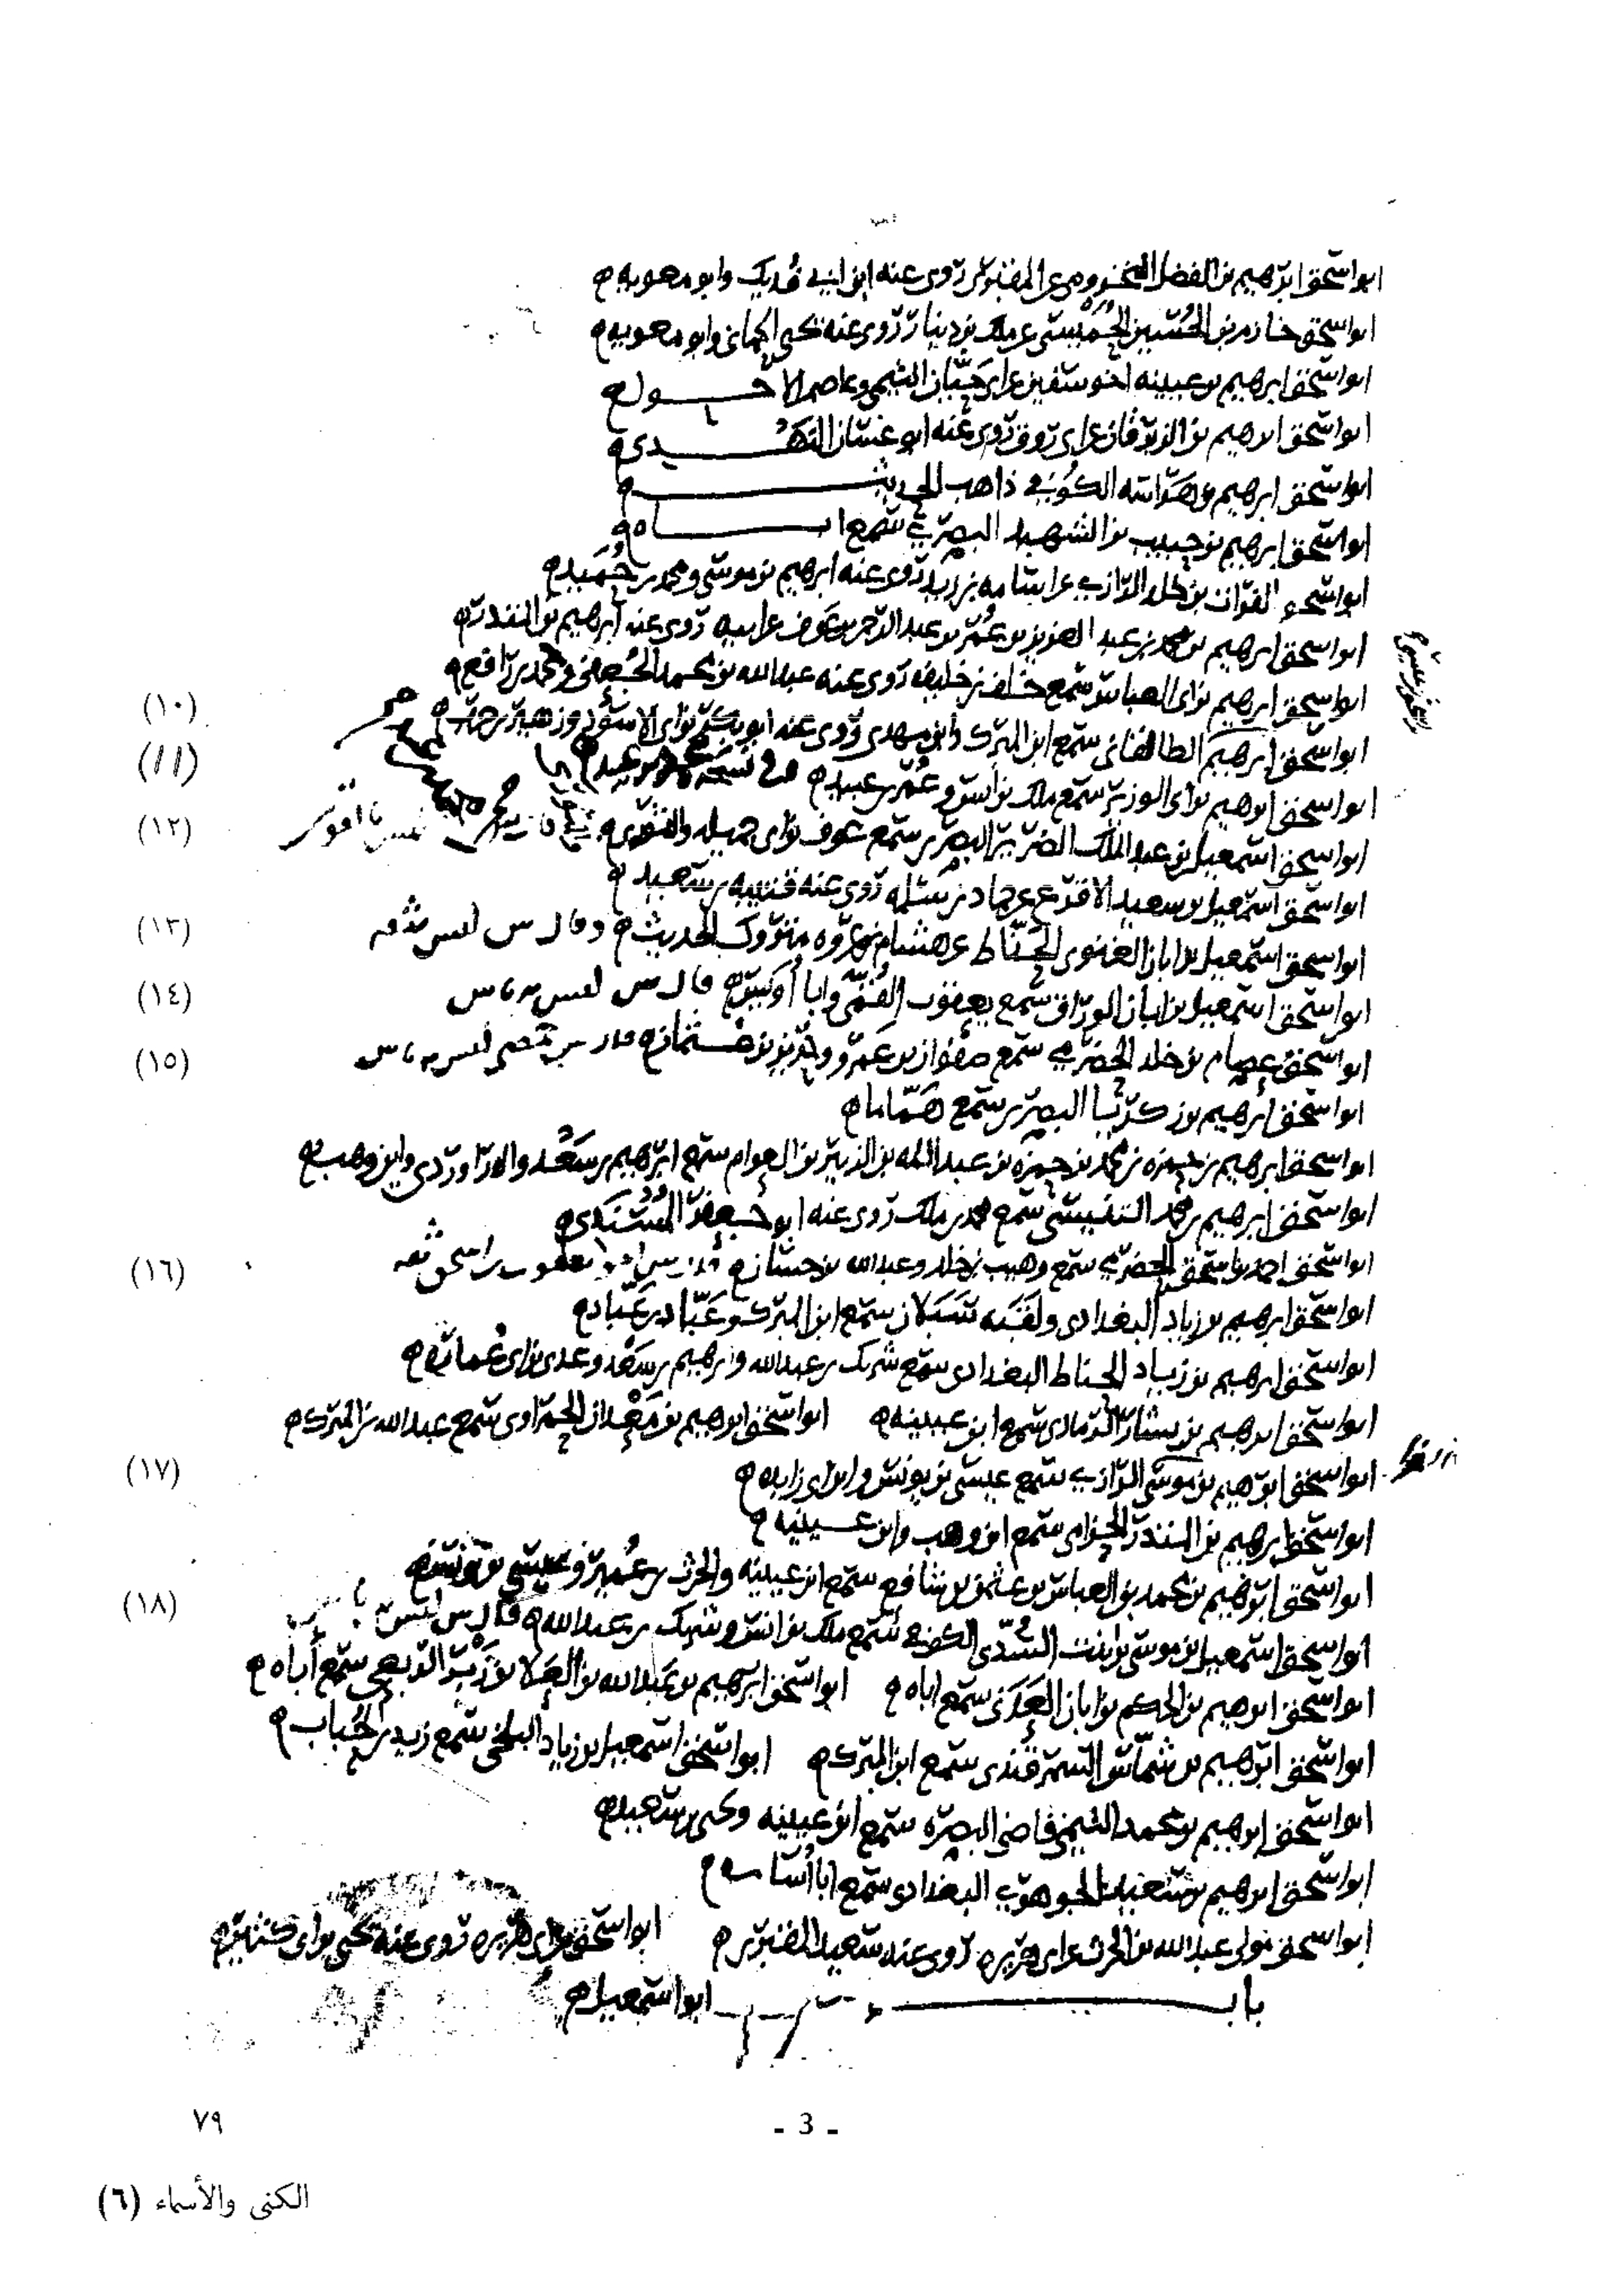 ابو اسحق ابرهيم بن الفضل المخزومى عن المقبرى روى عنه ابن ابى فديك وابو معويه
ابو اسحق خازم بن الحسين الحميسى عن ملك بن دينار روى عنه يحيى الحمانى وابو معويه
ابو اسحق ابرهيم بن عيينه اخو سفين عن ابى حيان التيمى وعاصم الاحول
ابو اسحق ابرهيم بن الزبرقان عن ابى روق روى عنه ابو غسان النهدى
ابو اسحق ابرهيم بن هراسه الكوفى ذاهب الحديث
ابو اسحق ابرهيم بن حبيب بن الشهيد البصرى سمع اباه
ابو اسحق الفرات بن خلد الرازى عن اسامه بن زيد روى عنه ابرهيم بن موسى ومحمد بن حميد
ابو اسحق ابرهيم بن محمد بن عبد العزيز بن عمر بن عبد الرحمن بن عوف عن ابيه روى عنه ابرهيم بن المنذر
ابو اسحق ابرهيم بن ابى العباس سمع خلف بن خليفه روى عنه عبد الله بن محمد الجعفى ومحمد بن رافع
(١٠)
ابو اسحق ابرهيم الطالقانى سمع ابن المبرك وابن مهدى روى عنه ابو بكر بن ابى الاسود وزهير بن حرب
(١١)
ابو اسحق ابرهيم بن ابى الوزير سمع ملك بن انس وعمر بن عبيد فى نسخه
ابو اسحق اسمعيل بن عبد الملك الضرير البصرى سمع عوف بن ابى جميله والثورى
(١٢)
ابو اسحق اسمعيل بن سعيد الاقرع عن حماد بن سلمه روى عنه قتيبه بن سعيد
ابو اسحق اسمعيل بن ابان الغنوى الحناط عن هشام بن عروه متروك الحديث وقال س ليس بثقه
(١٣)
ابو اسحق اسمعيل بن ابان الوراق سمع يعقوب القمى وابا أويس قال س ليس به باس
(١٤)
ابو اسحق عصام بن خلد الحضرمى سمع صفوان بن عمرو وحريز بن عثمان ليس به باس
(١٥)
ابو اسحق ابرهيم بن زكريا البصرى سمع هماما
ابو اسحق ابرهيم بن حمزه بن محمد بن حمزه بن عبد الله بن الزبير بن العوام سمع ابرهيم بن سعد والدراوردى وابن وهب
ابو اسحق ابرهيم بن محمد سمع محمد بن ملك روى عنه ابو جعفر المسندى
ابو اسحق احمد بن اسحق الحضرمى سمع وهيب بن خلد وعبد الله بن حسان يعقوب بن اسحق ثقه
(١٦)
ابو اسحق ابرهيم بن زياد البغدادى ولقبه سبلان سمع ابن المبرك وعباد بن عباد
ابو اسحق ابرهيم بن زياد الحناط البغدادى سمع شريك بن عبد الله وابرهيم بن سعد وعدى بن ابى عماره
ابو اسحق ابرهيم بن بشار الرمادى سمع ابن عيينه ابو اسحق ابرهيم بن معدان سمع عبد الله بن المبرك
ابو اسحق ابرهيم بن موسى الرازى سمع عيسى بن يونس وابن ابى زايده
(١٧)
ابو اسحق ابرهيم بن المنذر الحزامى سمع ابن وهب وابن عيينه
ابو اسحق ابرهيم بن محمد بن العباس بن عثمن بن شافع سمع ابن عيينه والحرث بن عمير وعيسى بن يونس
ابو اسحق اسمعيل بن موسى بن بنت السدى الكوفى سمع ملك بن انس وشريك بن عبد الله قال س ليس
(١٨)
ابو اسحق ابرهيم بن الحكم بن ابان العدنى سمع اباه ابو اسحق ابرهيم بن عبد الله بن العلا بن زبر الربعى سمع أباه
ابو اسحق ابرهيم بن شماس السمرقندى سمع ابن المبرك ابو اسحق اسمعيل بن زياد البلخى سمع زيد بن الحباب
ابو اسحق ابرهيم بن محمد التيمى قاضى البصره سمع ابن عيينه ويحيى بن سعيد
ابو اسحق ابرهيم بن سعيد الجوهرى البغدادى سمع ابا أسامه
ابو اسحق مولى عبد الله بن الحرث عن ابى هريره روى عنه سعيد المقبرى ابو اسحق عن ابى هريره روى عنه يحيى بن ابى كثير
باب ابو اسمعيل
- 3 -
٧٩
الكنى والأسماء (٦)